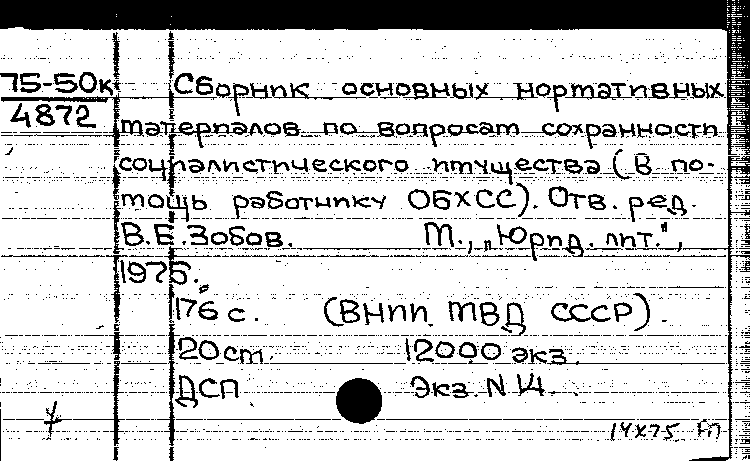 75-50к
4872
Сборник основных нормативных
материалов по вопросам сохранности
социалистического имущества (В по-
мощь работнику ОБХСС). Отв. ред.
В.Е.Зобов. М., „Юрид. лит.",
1975.
176 с. (ВНИИ МВД СССР).
20 см. 12000 экз.
ДСП Экз. N 14.
14X75